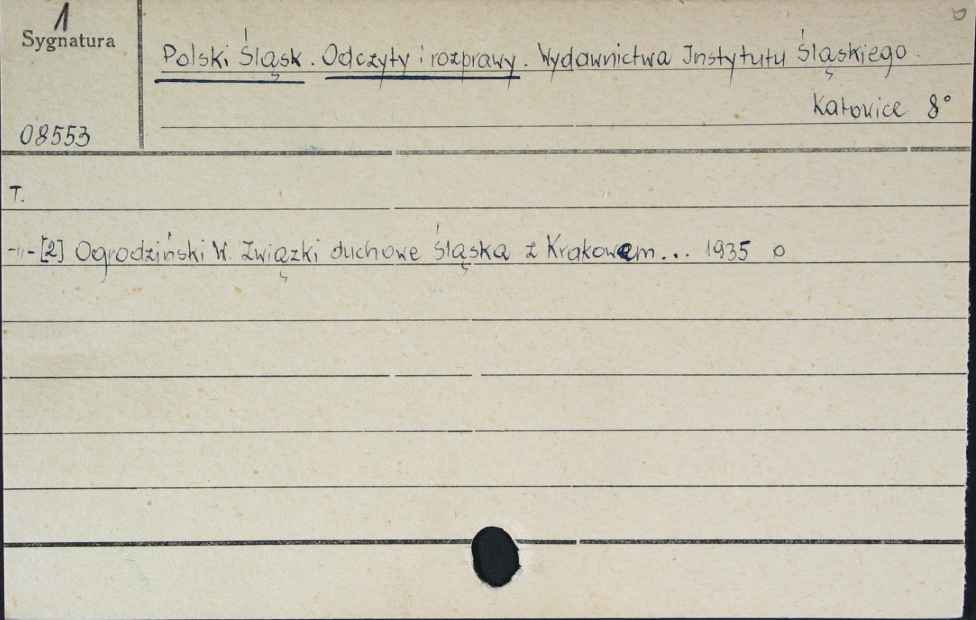 1
Sygnatura
Polski Śląsk. Odczyty i rozprawy. Wydawnictwa Instytutu Śląskiego.
Katowice 8°
08553
T.
-"-[2] Ogrodziński W. Związki duchowe Śląska z Krakowem... 1935 o